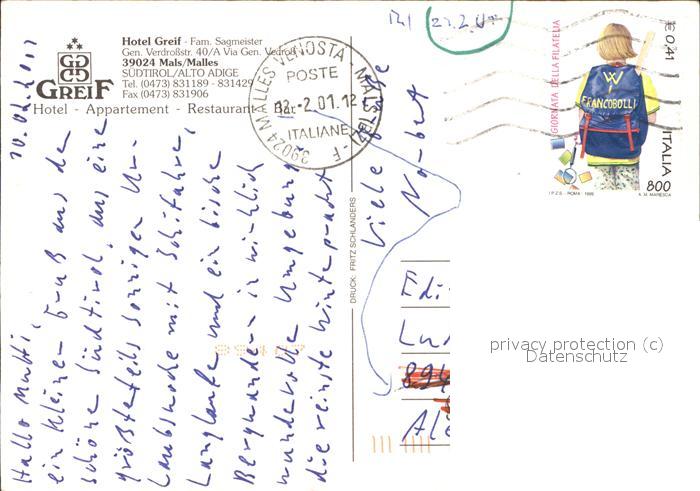 Hotel Greif - Fam. Sagmeister
Gen. Verdroßstr. 40/A Via Gen. Verdroß
39024 Mals/Malles
SÜDTIROL/ALTO ADIGE
Tel. (0473) 831189 - 831429
Fax (0473) 831906
GREIF
Hotel - Appartement - Restaurant - Bar
39024 MALLES VENOSTA - MALS (BZ) - F
POSTE
12.-2.01.12
ITALIANE
GIORNATA DELLA FILATELIA
€ 0,41
W
I
FRANCOBOLLI
ITALIA
800
I.P.Z.S. - ROMA - 1999
A. M. MARESCA
10.02.2001
Hallo Mutti,
ein kleinen Gruß aus dem
schönen Südtirol, aus einer
größtenteils sonnigen Ur-
laubswoche mit Schifahren,
Langlaufen und ein bisschen
Bergwandern in wirklich
wundervoller Umgebung
die reinste Winterpracht
Viele Grüße
Norbert
DRUCK: FRITZ SCHLANDERS
Edi
894
privacy protection (c)
Datenschutz